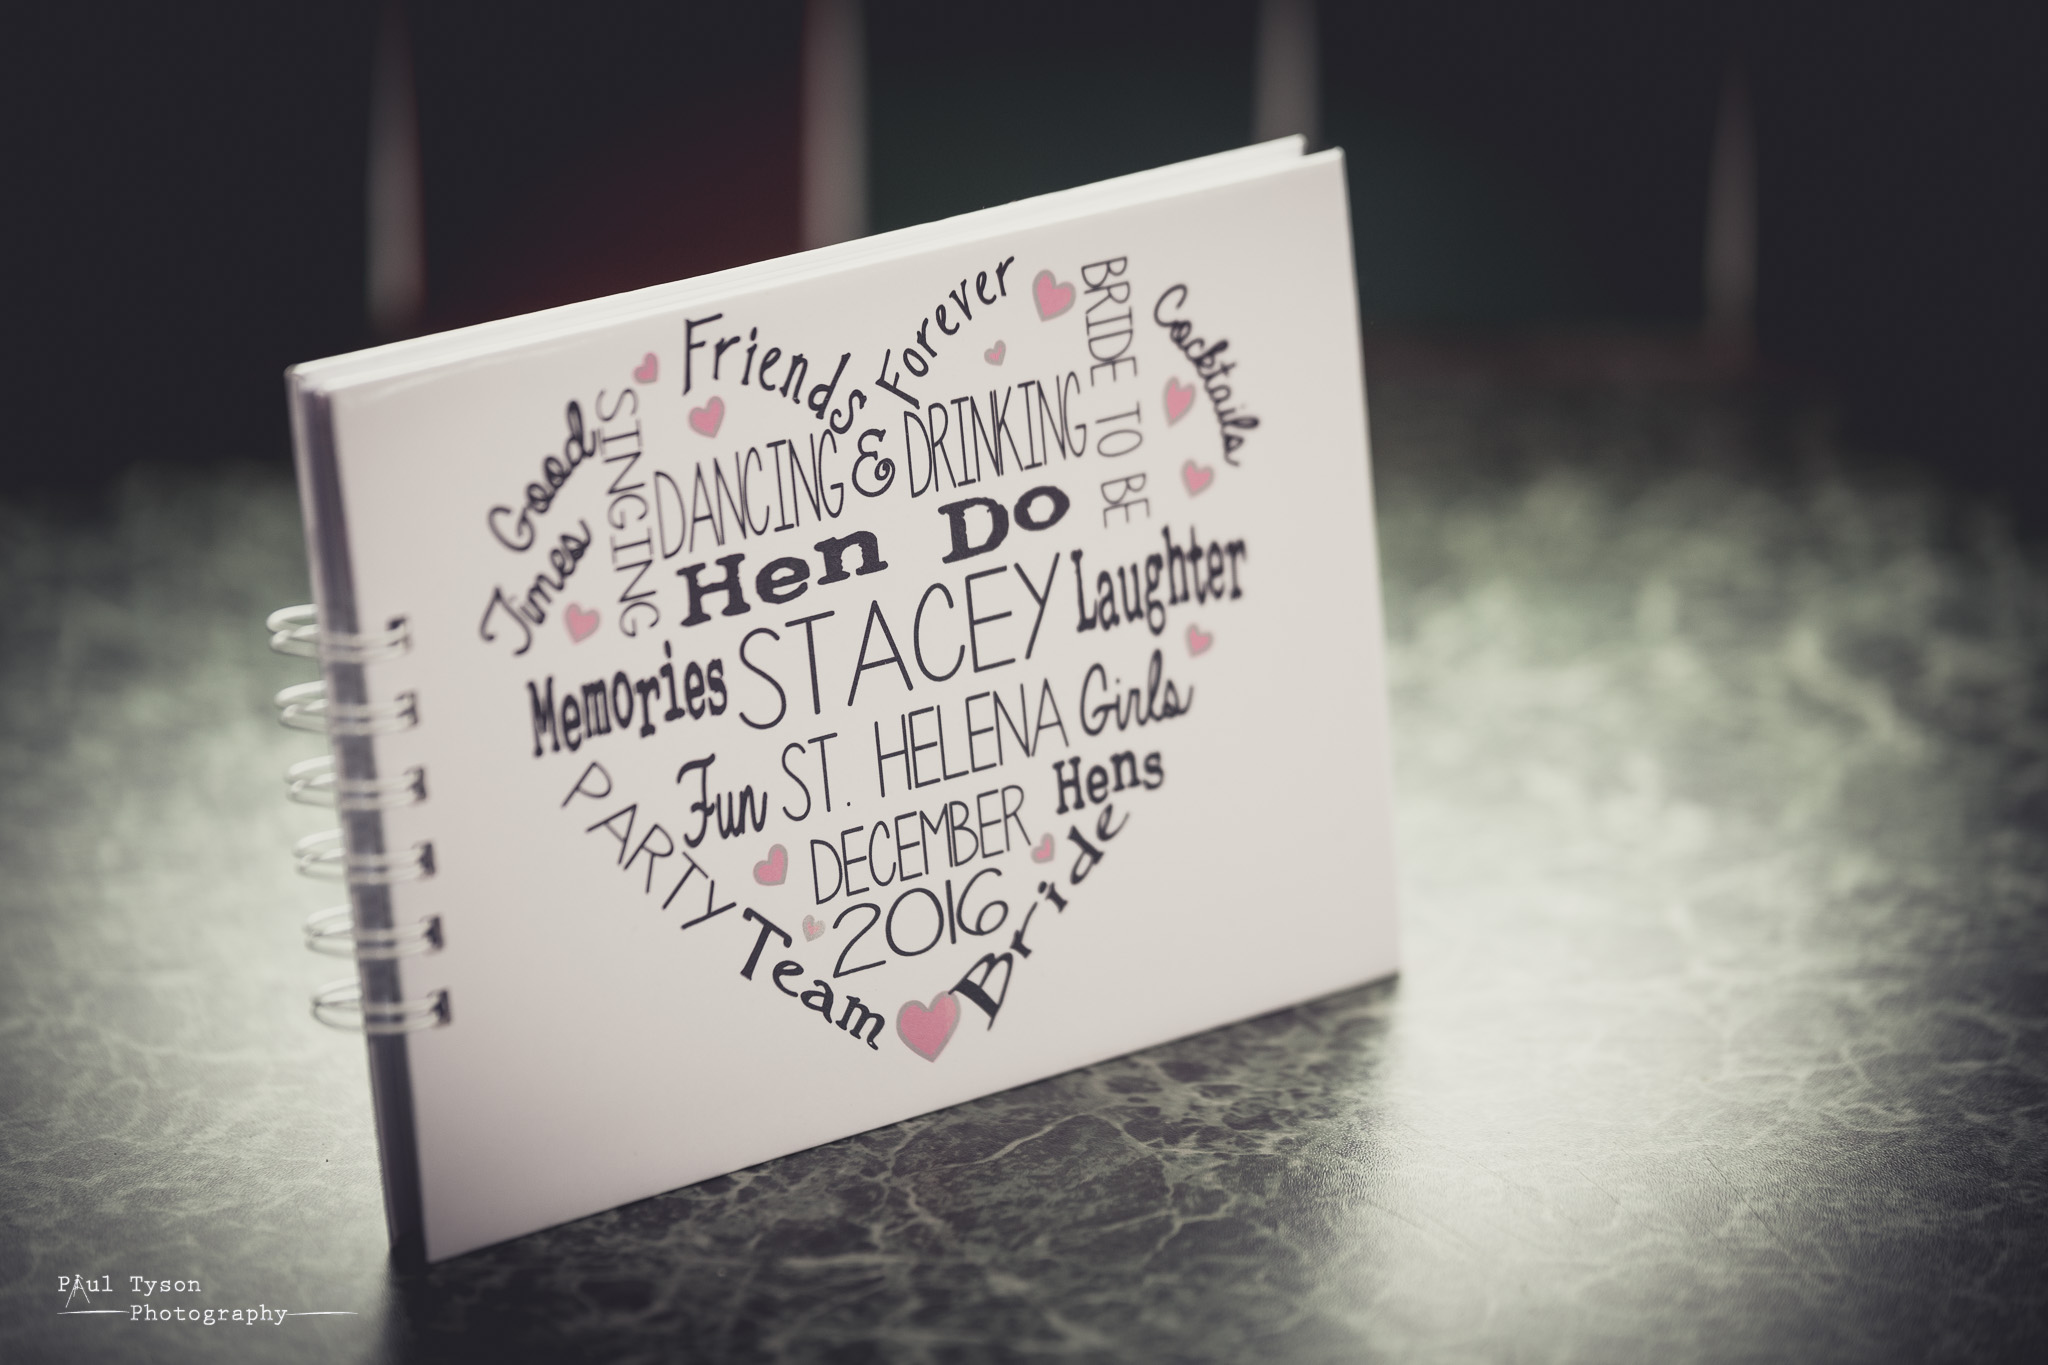 Friends Forever
BRIDE TO BE
Cocktails
Good
Times
SINGING
DANCING & DRINKING
Hen Do
STACEY
Laughter
Memories
Fun ST. HELENA Girls
PARTY
DECEMBER
Hens
2016
Team
Bride
Paul Tyson
Photography